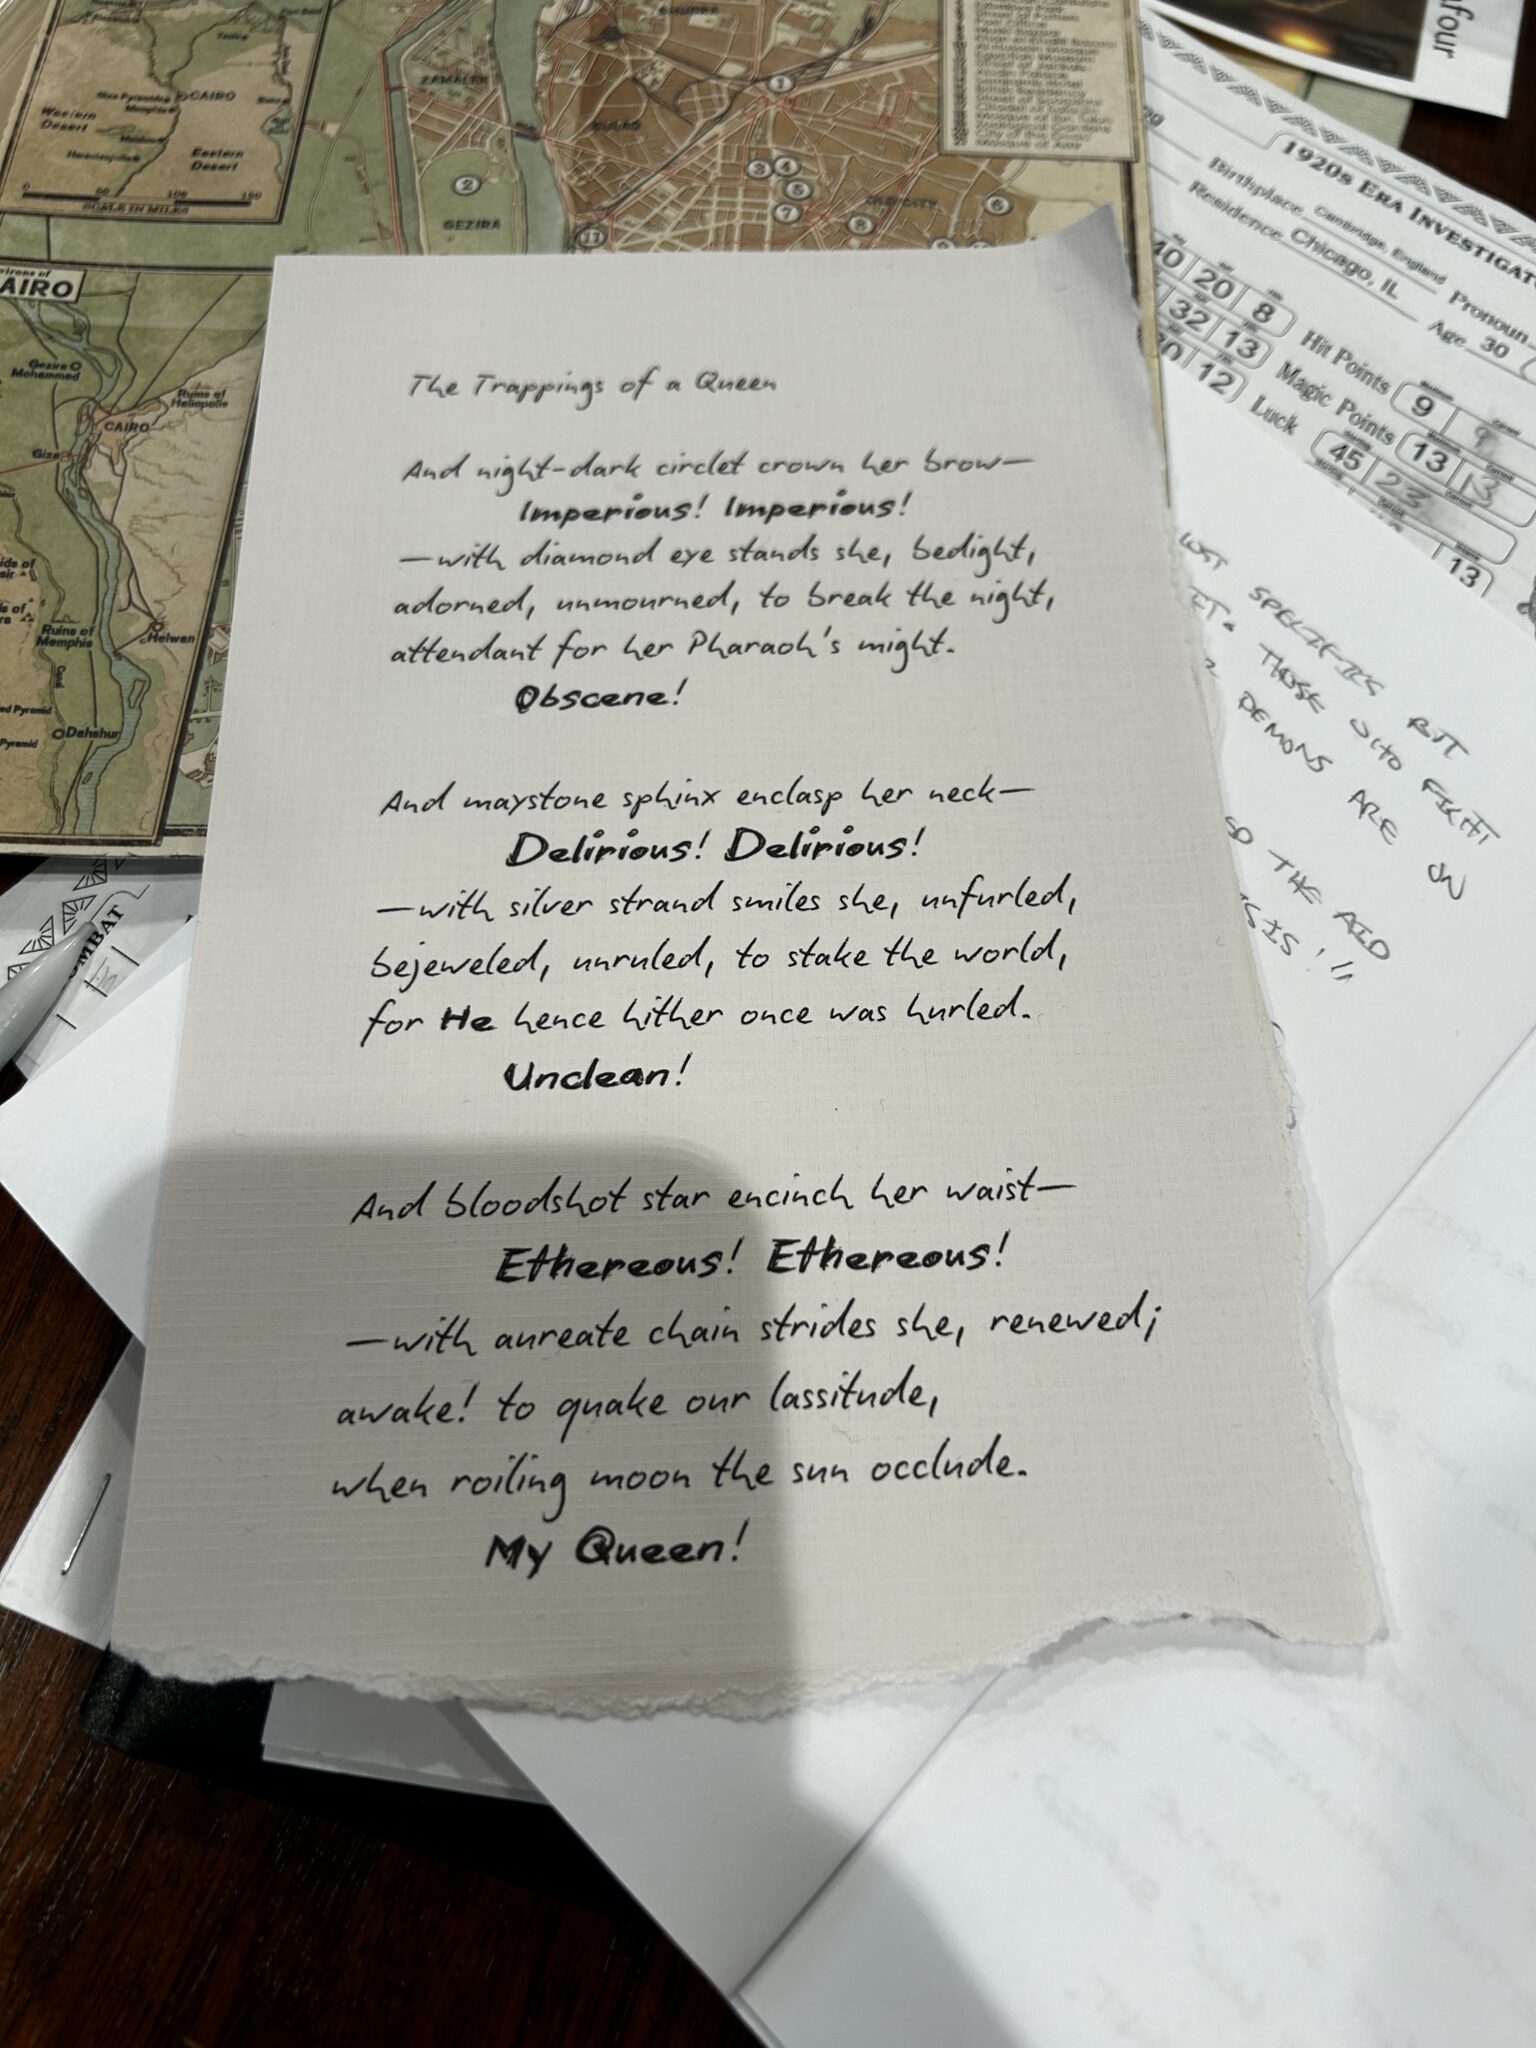 The Trappings of a Queen
And night-dark circlet crown her brow—
Imperious! Imperious!
—with diamond eye stands she, bedight,
adorned, unmourned, to break the night,
attendant for her Pharaoh's might.
Obscene!
And maystone sphinx enclasp her neck—
Delirious! Delirious!
—with silver strand smiles she, unfurled,
bejeweled, unruled, to stake the world,
for He hence hither once was hurled.
Unclean!
And bloodshot star encinch her waist—
Ethereous! Ethereous!
—with aureate chain strides she, renewed;
awake! to quake our lassitude,
when roiling moon the sun occlude.
My Queen!
CAIRO
Western
Desert
Eastern
Desert
SCALE IN MILES
ZAMALEK
2
GEZIRA
1
3
4
5
7
8
6
11
AIRO
Gezira
Mohammed
Ruins of
Heliopolis
CAIRO
Giza
Ruins of
Memphis
Helwan
Dahshur
Pyramid
1920s ERA INVESTIGAT
Birthplace Cambridge, England
Residence Chicago, IL
Pronoun
Age 30
40 20 8
32 13
12
Hit Points 9 9
Magic Points 13 13
Luck 45 23
13
SPECIFICS BUT
THOSE WHO FIGHT
DEMONS ARE ON
THE AID